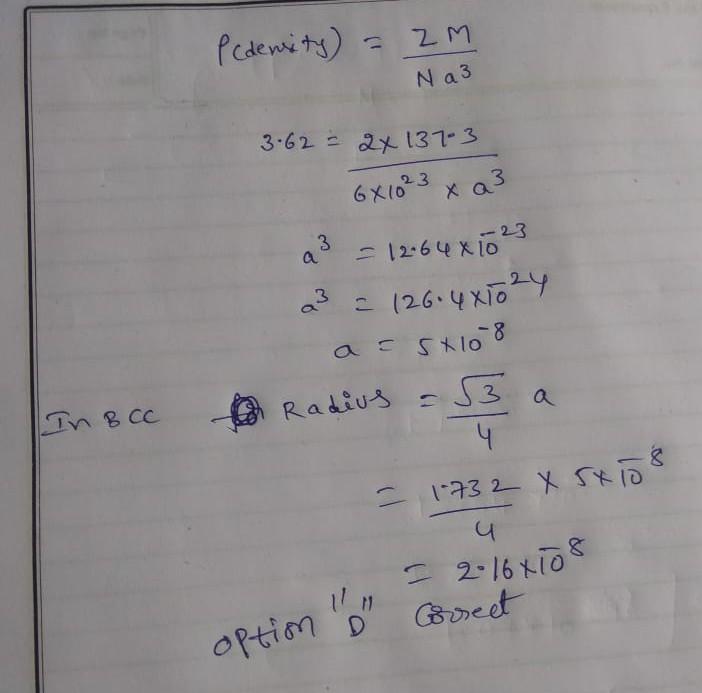 P(density) = ZM / Na³
3.62 = 2×137.3 / 6×10²³ × a³
a³ = 12.64×10⁻²³
a³ = 126.4×10⁻²⁴
a = 5×10⁻⁸
In BCC → Radius = √3/4 a
= 1.732/4 × 5×10⁻⁸
= 2.16×10⁻⁸
option "D" Correct